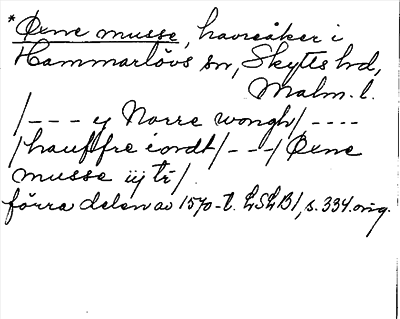 *Öxne musse, havreåker i
Hammarlövs sn, Skytts hd,
Malm. l.
/--- y Norre wongh/----
/hauffre iordt/--/ Öxne
musse iij tr/
förra delen av 1570-t. LSLB1, s. 334. orig.